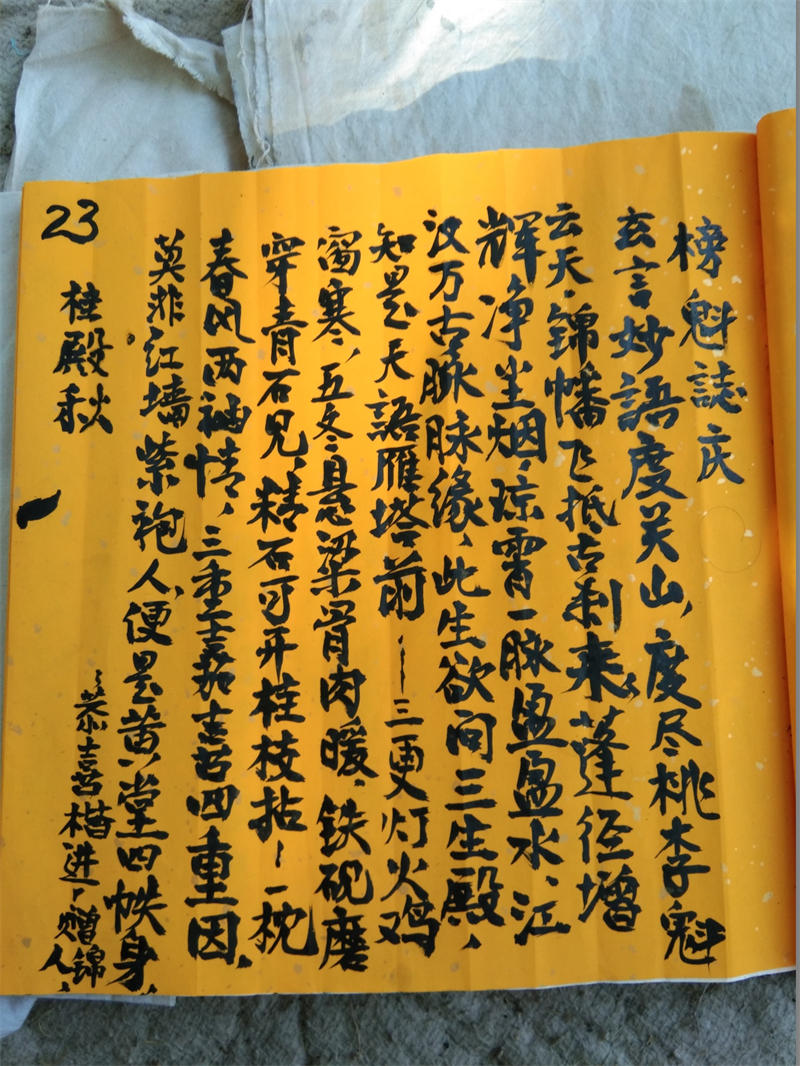 榜魁誌庆
玄言妙語度关山,度尽桃李魁
云天,锦幡飞抵古刹来,蓬径增
辉净尘烟,琼霄一脉盈盈水、江
汉万古脉脉缘、此生欲问三生殿,
知是天語雁塔前——三更灯火鸡
窗寒、五冬悬梁骨肉暖、铁砚磨
穿青石见,精石可开桂枝拈——枕
春风两袖情,三重嘉喜四重因,
莫非红墙紫袍人,便是黄堂四帙身,
——恭喜楷进赠锦人,
桂殿秋
23